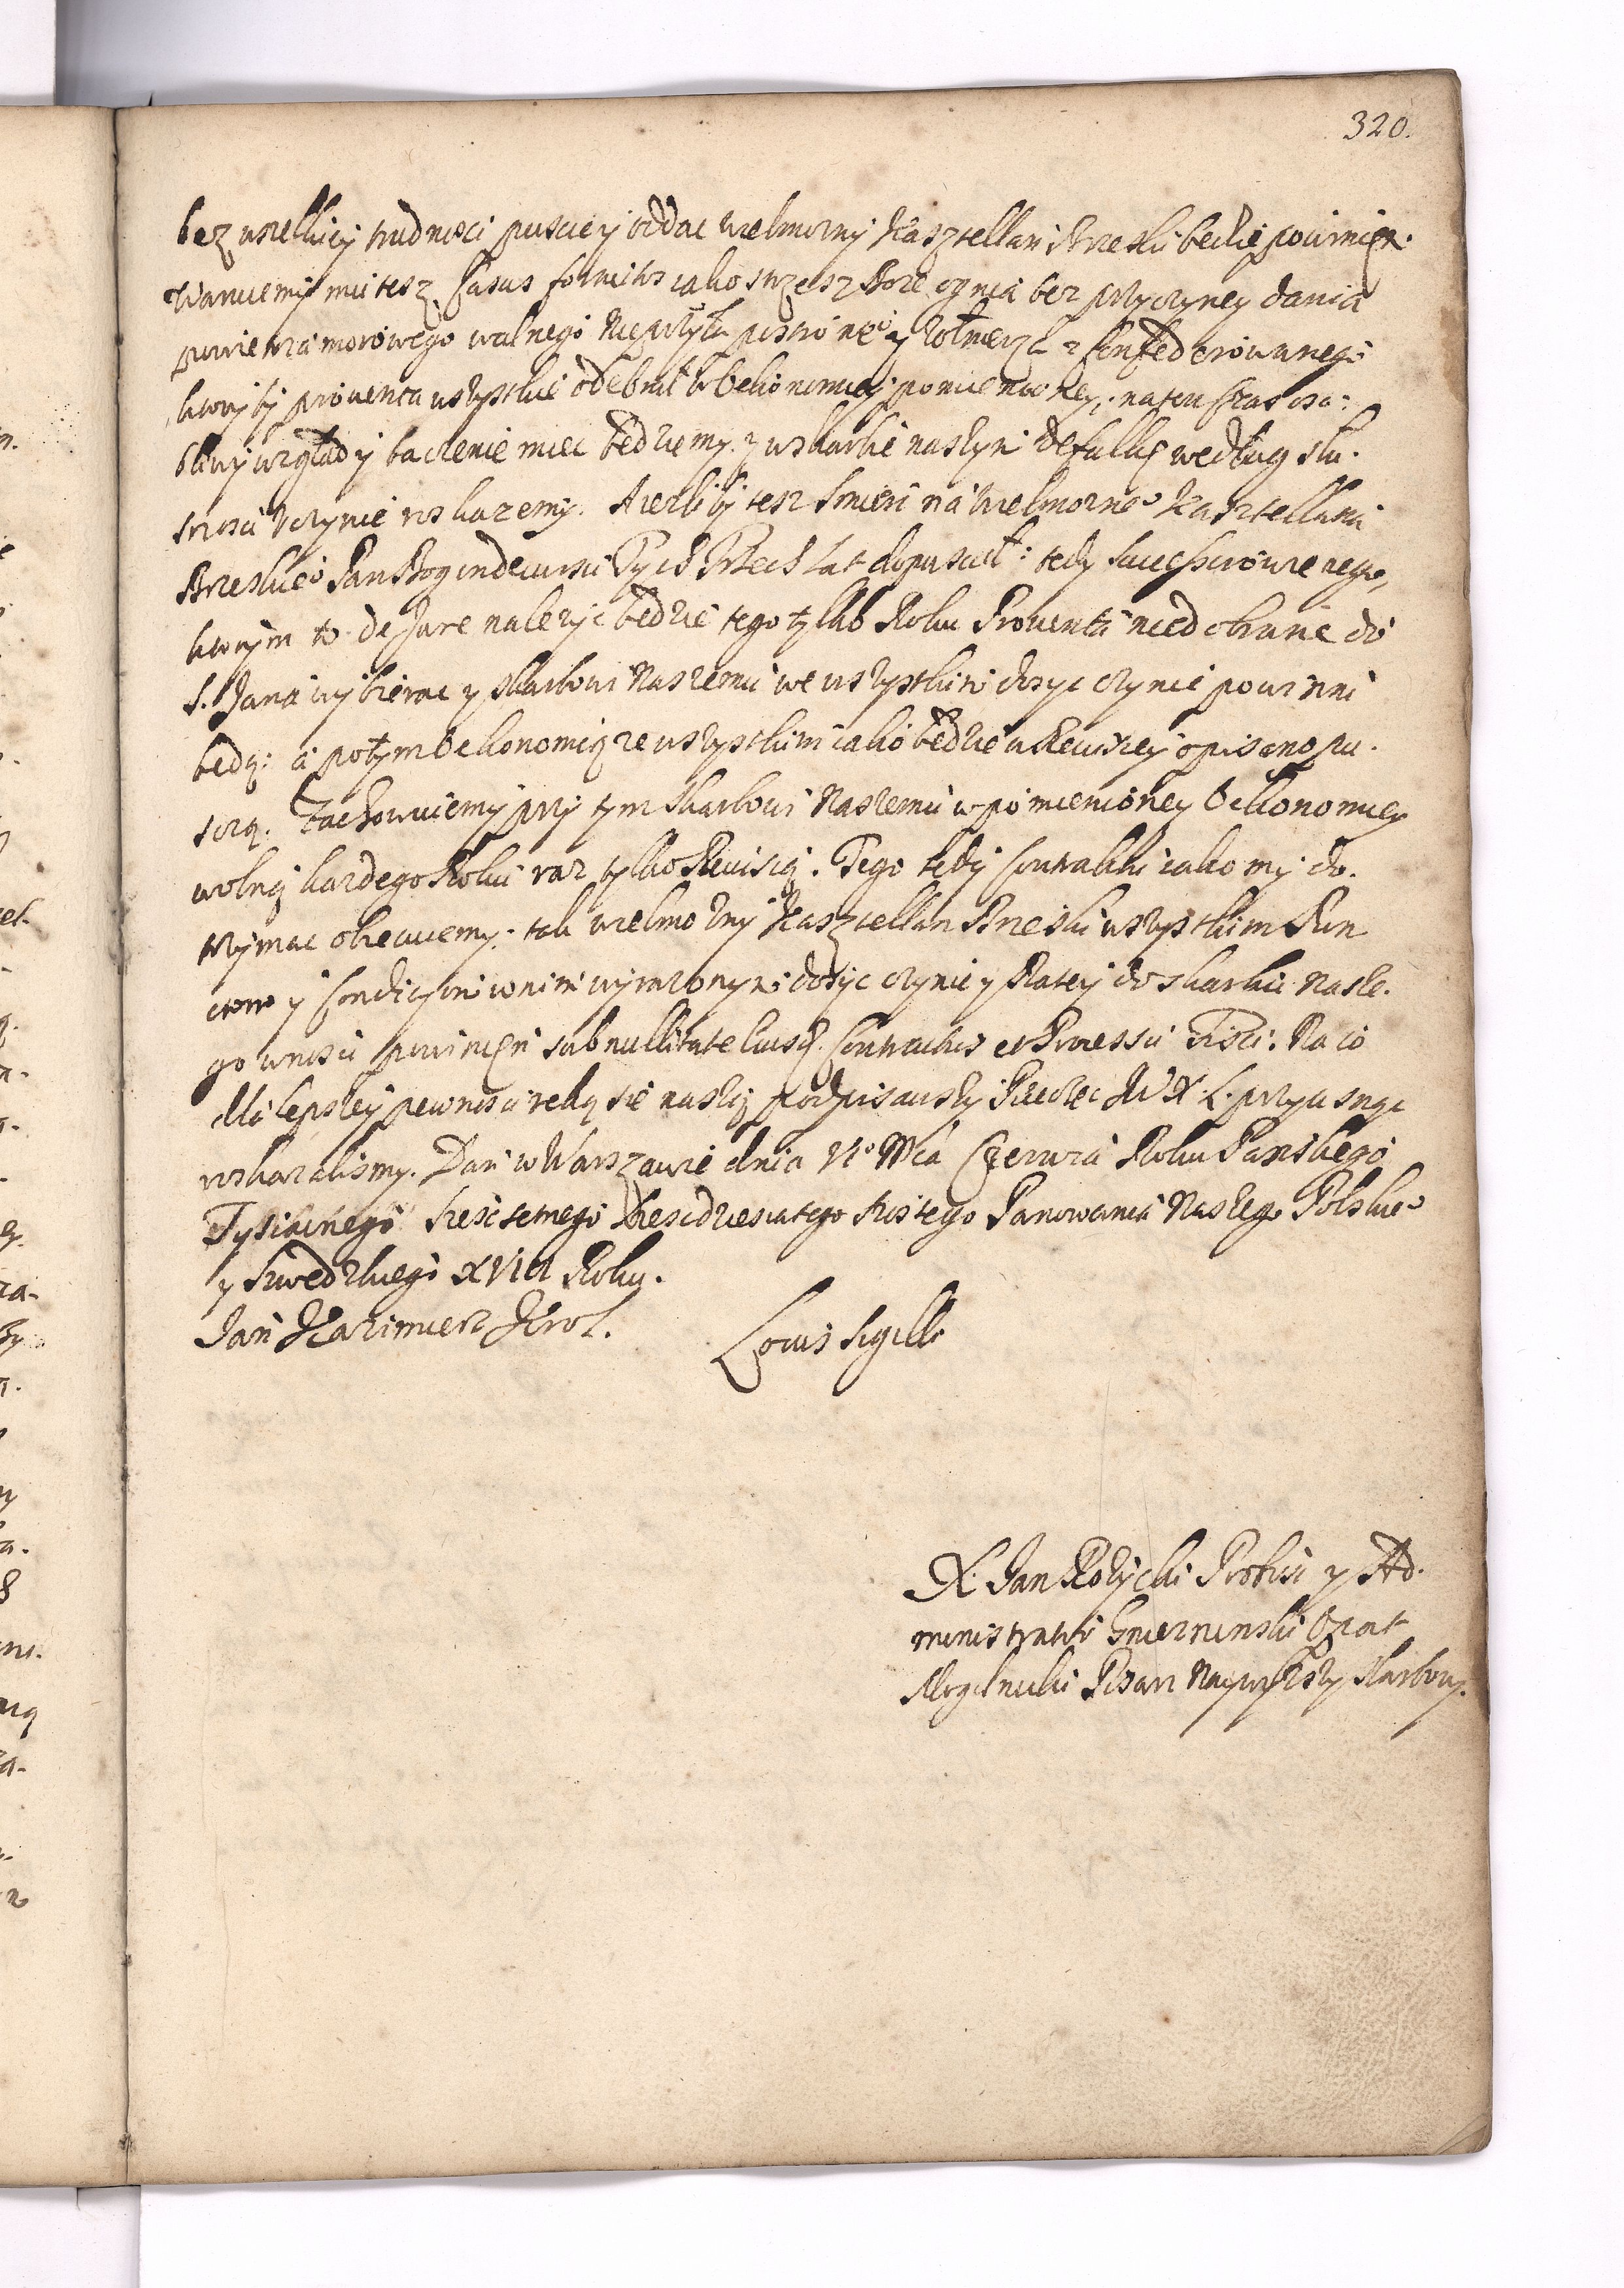 320.
bez wselkiey trudnosci puscic y oddac wielmozny Kasztellan Brzeski bedzie powinien.
Waruiemy mu tesz Casus fortuitos iako strzesz Boze ognia bez przyczyney dania
powietrza morowego walnego Nieprzyiaciela postronneo y zołnierza z Confederowanego
ktoryby prowenta wszystkie odebrał w Oekonomiey pomienioney, na ten czas oso:
bliwy wzgląd y baczenie miec będziemy. y w skarbie naszym defalkę według słu.
sznosci uczynic roskazemy. A iezliby tesz smierc na wielmozneo Kasztellana
Brzeskieo Pan Bog in decursu Tych Trzech Lat dopuscił: tedy Successorowie nego,
ktorym to de Jure nalezyc będzie tego tylko Roku Prowenta niedobrane do
S. Jana wybierac y skarbowi Naszemu we wszystkim dosyc czynic powinni
będą: a potym Oekonomią ze wszystkim iako będzie w Rewizyey opisano pu.
szczą. Zachowuiemy przy tym Skarbowi Naszemu w pomienioney Oekonomiey
wolną kazdego Roku raz tylko Rewisią. Tego tedy Contraktu iako my do.
trzymac obiecuiemy: tak wielmozny Kasztellan Brzeski wszystkim Pun
ctom y Condicyom w nim wyrazonym dosyc czynic y Ratey do skarbu Nasze.
go wnosic powinien sub nullitate eiusd. Contractus et Processu Fisci: Na co
dla lepszey pewnosci ręką się naszą podpisawszy Pieczec W. X. L. przycisnąc
roskazalismy. Dan w Warszawie dnia VI° Mca Czerwca Roku Panskiego
Tysiacnego Szesc setnego Szescdziesiatego szostego Panowania Naszego Polskieo
y Szwedzkiego XVIII Roku.
Jan Kazimierz Krol. Locus Sigilli
X. Jan Rozycki Probosc y Ad.
ministrator Gnieznienski Opat
Mogilnicki Pisarz Naywyszszy Skarbowy.